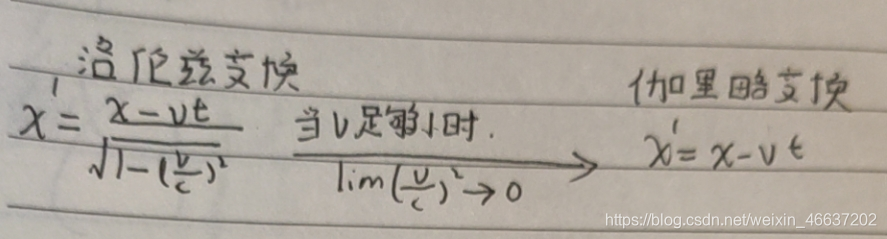 洛伦兹变换
x' = \frac{x-vt}{\sqrt{1-(\frac{v}{c})^2}}
当v足够小时.
lim(\frac{v}{c})^2→0
伽里略变换
x'=x-vt
https://blog.csdn.net/weixin_46637202